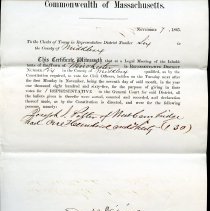 Commonwealth of Massachusetts.
NOVEMBER 7, 1865.
To the Clerks of Towns in Representative District Number Six in
the County of Middlesex
This Certifies Witnesseth that at a Legal Meeting of the Inhabi-
tants of the Town of Winchester in REPRESENTATIVE DISTRICT
NUMBER Six in the County of Middlesex qualified, as by the
Constitution required, to vote for Civil Officers, holden on the Tuesday next after the
first Monday in November, being the seventh day of said month, in the year
one thousand eight hundred and sixty-five, for the purpose of giving in their votes
for REPRESENTATIVE in the General Court for said District, all
the ballots for Representative being sorted, counted and recorded, and
declaration thereof made, as by the Constitution is directed, and were for the following
persons, namely:
Joseph S. Potter of West Cambridge
had One Hundred and thirty (130)